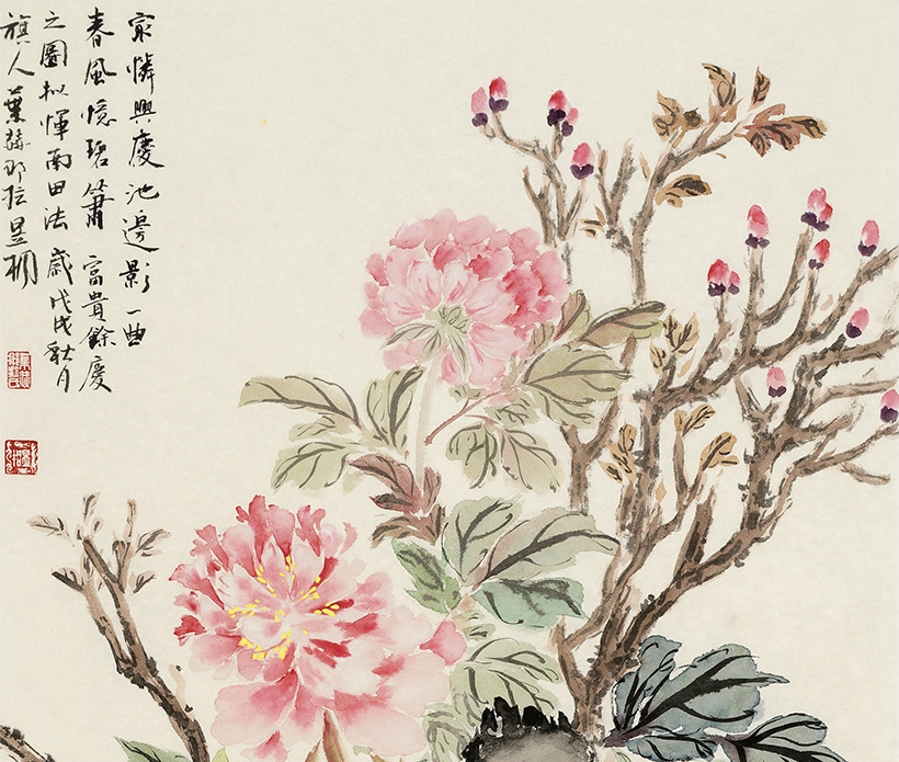 最憐興慶池邊影一曲
春風憶碧簫 富貴餘慶
之圖拟惲南田法 歲戊戌秋月
旗人葉赫那拉昱桐